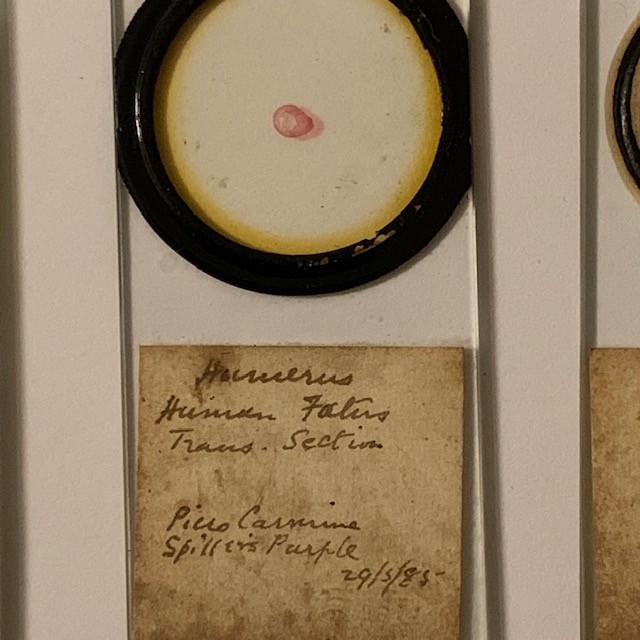 Humerus
Human Fœtus
Trans. Section
Picro Carmine
Spiller's Purple
29/5/85